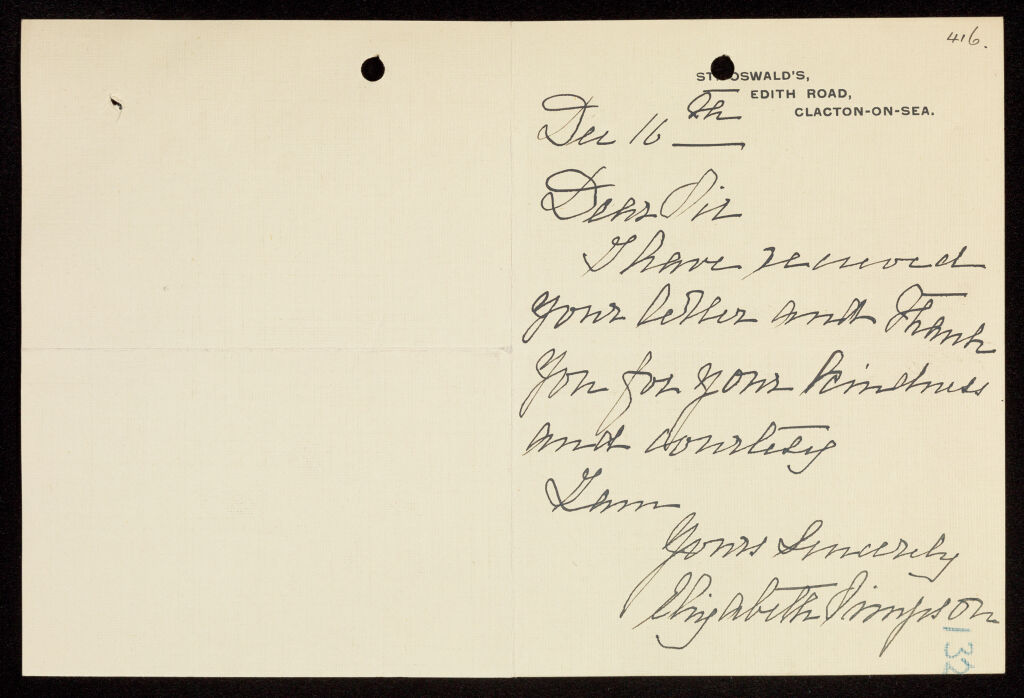 416.
ST. OSWALD'S,
EDITH ROAD,
CLACTON-ON-SEA.
Dec 16th
Dear Sir
I have received
your letter and Thank
you for your kindness
and courtesy
I am
Yours Sincerely
Elizabeth Simpson
132